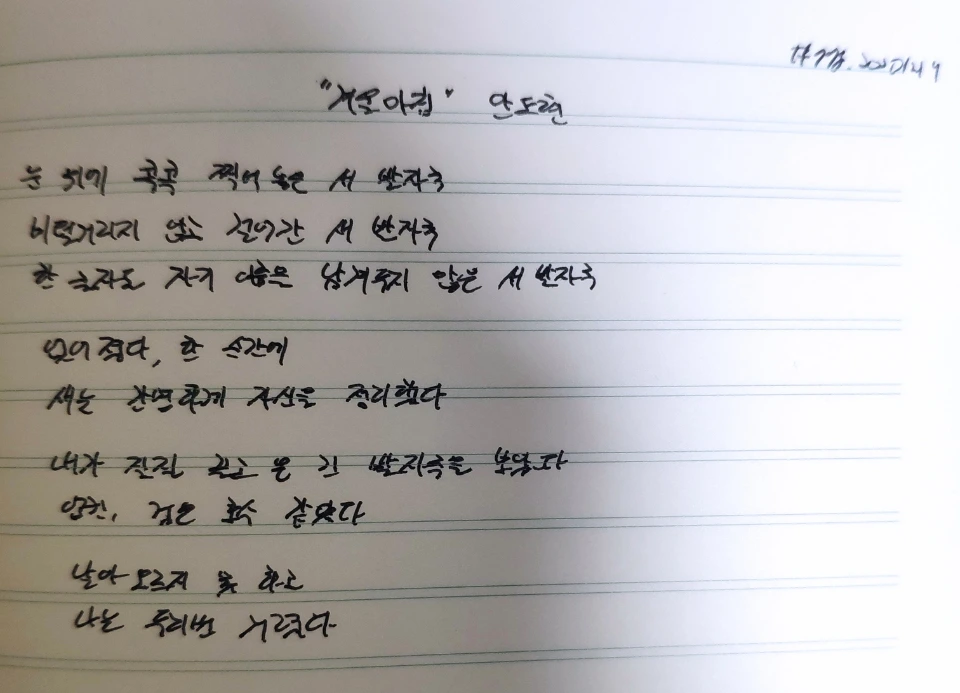 "겨울아침" 안도현
눈 위에 콕콕 찍어놓은 새 발자국
비틀거리지 않고 걸어간 새 발자국
한 글자도 자기 이름을 남겨두지 않은 새 발자국
없어졌다, 한 순간에
새는 간명하게 자신을 정리했다
내가 질질 끌고 온 긴 발자국을 보았다
엉킨, 검은 호수 같았다
날아오르지 못 하고
나는 두리번 거렸다